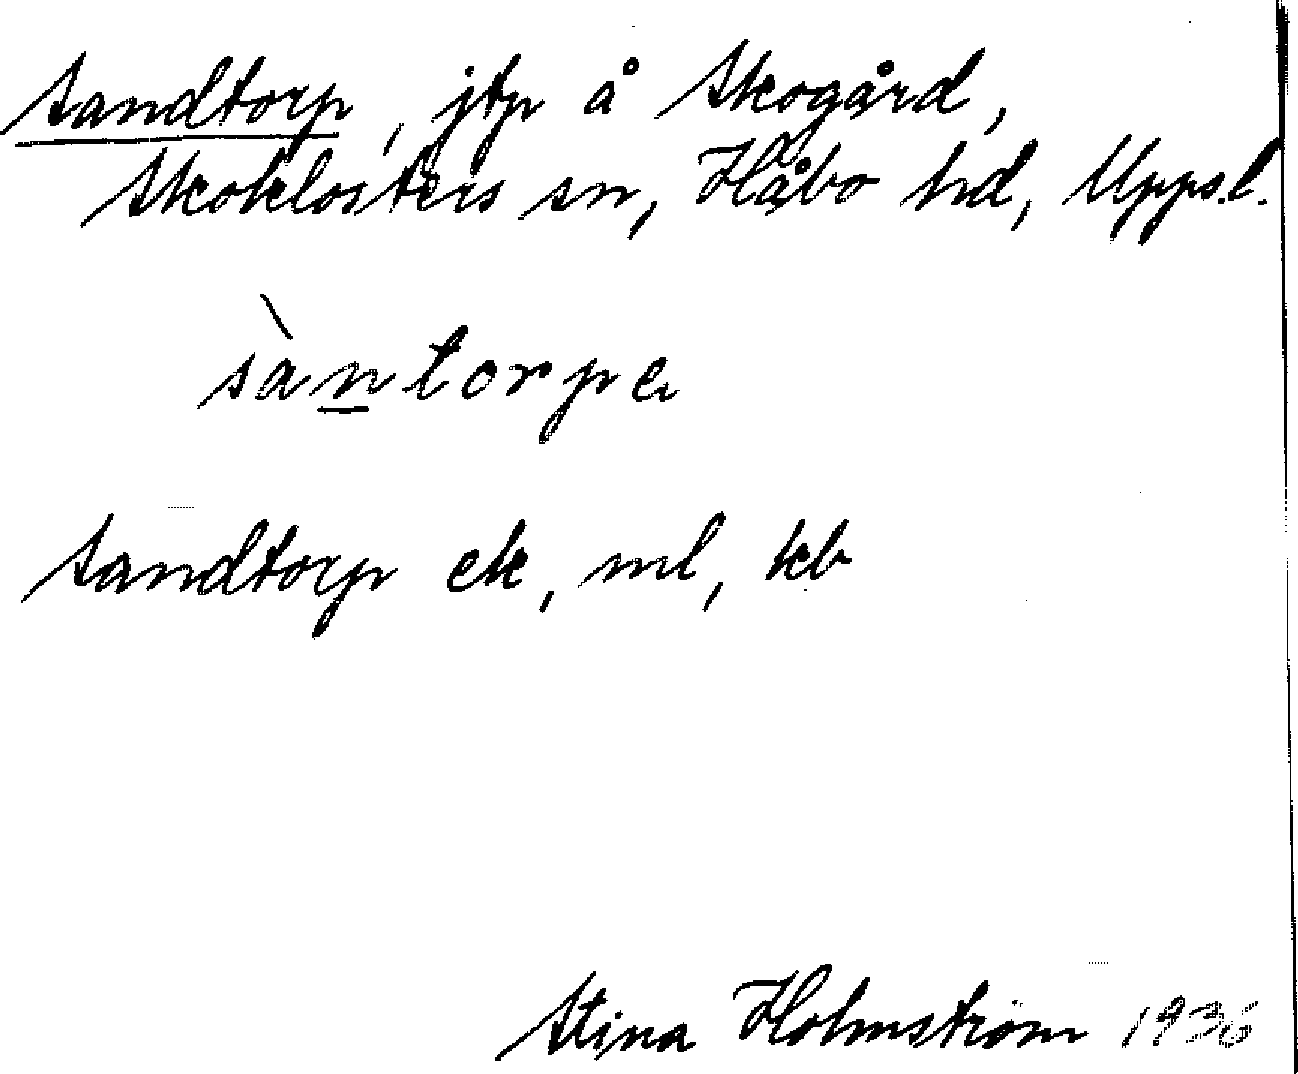 Sandtorp, jtp å Skogård,
Skoklosters sn, Håbo hd, Uppsl.
sàntorpe
Sandtorp ek, ml, kb
Stina Holmström 1936